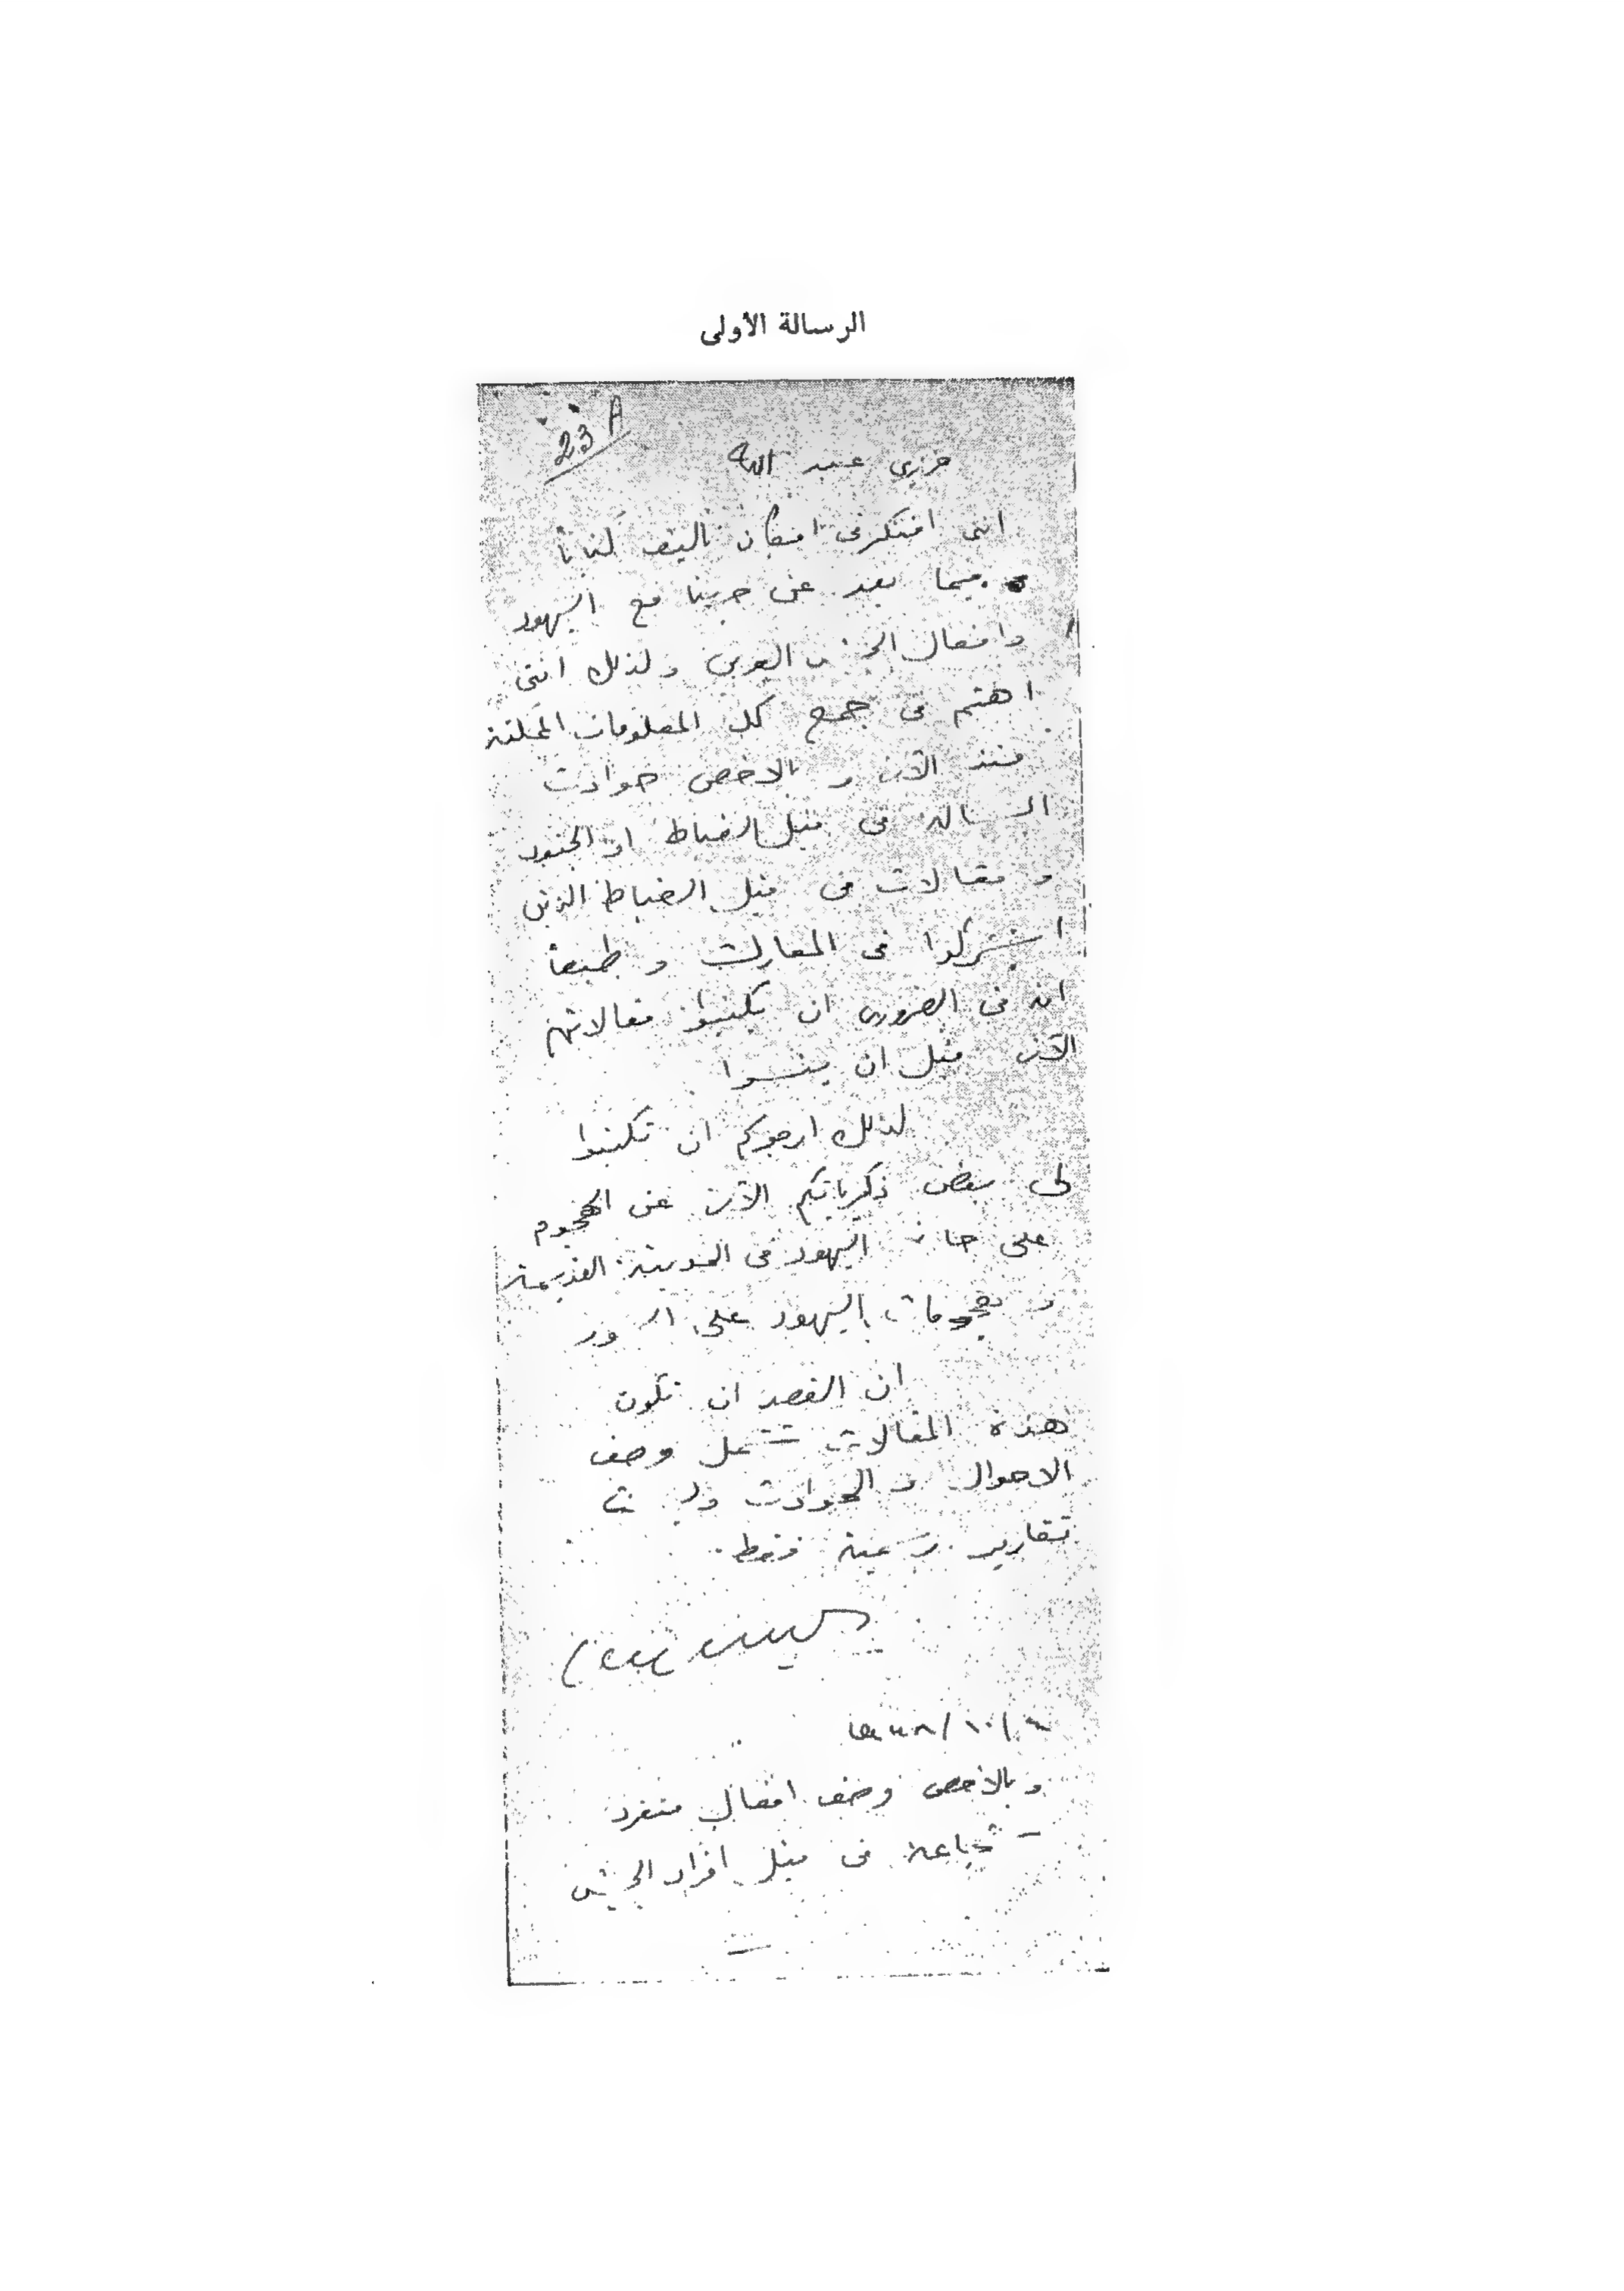 الرسالة الأولى
23 A
عزيزى عبد الله
اننى افتكر فى امكان تأليف كتابا
فيما بعد عن حربنا مع اليهود
وافعال الجيش العربى ولذلك اننى
اهتم فى جمع كل المعلومات الممكنة
منذ الآن و بالاخص حوادث
البسالة من قبل الضباط او الجنود
و مقالات من قبل الضباط الذين
اشتركوا فى المعارك و طبعاً
انه من الضرورى ان يكتبوا مقالاتهم
الآن قبل ان ينسوا
لذلك ارجوكم ان تكتبوا
لى بعض ذكرياتكم الآن عن الهجوم
على حارة اليهود فى المدينة القديمة
و هجومات اليهود على السور
ان القصد ان تكون
هذه المقالات تشمل وصف
الاحوال و الحوادث وليست
تقارير رسمية فقط.
٩٤٨/١٠/
و بالاخص وصف افعال منفردة
شجاعة من قبل افراد الجيش